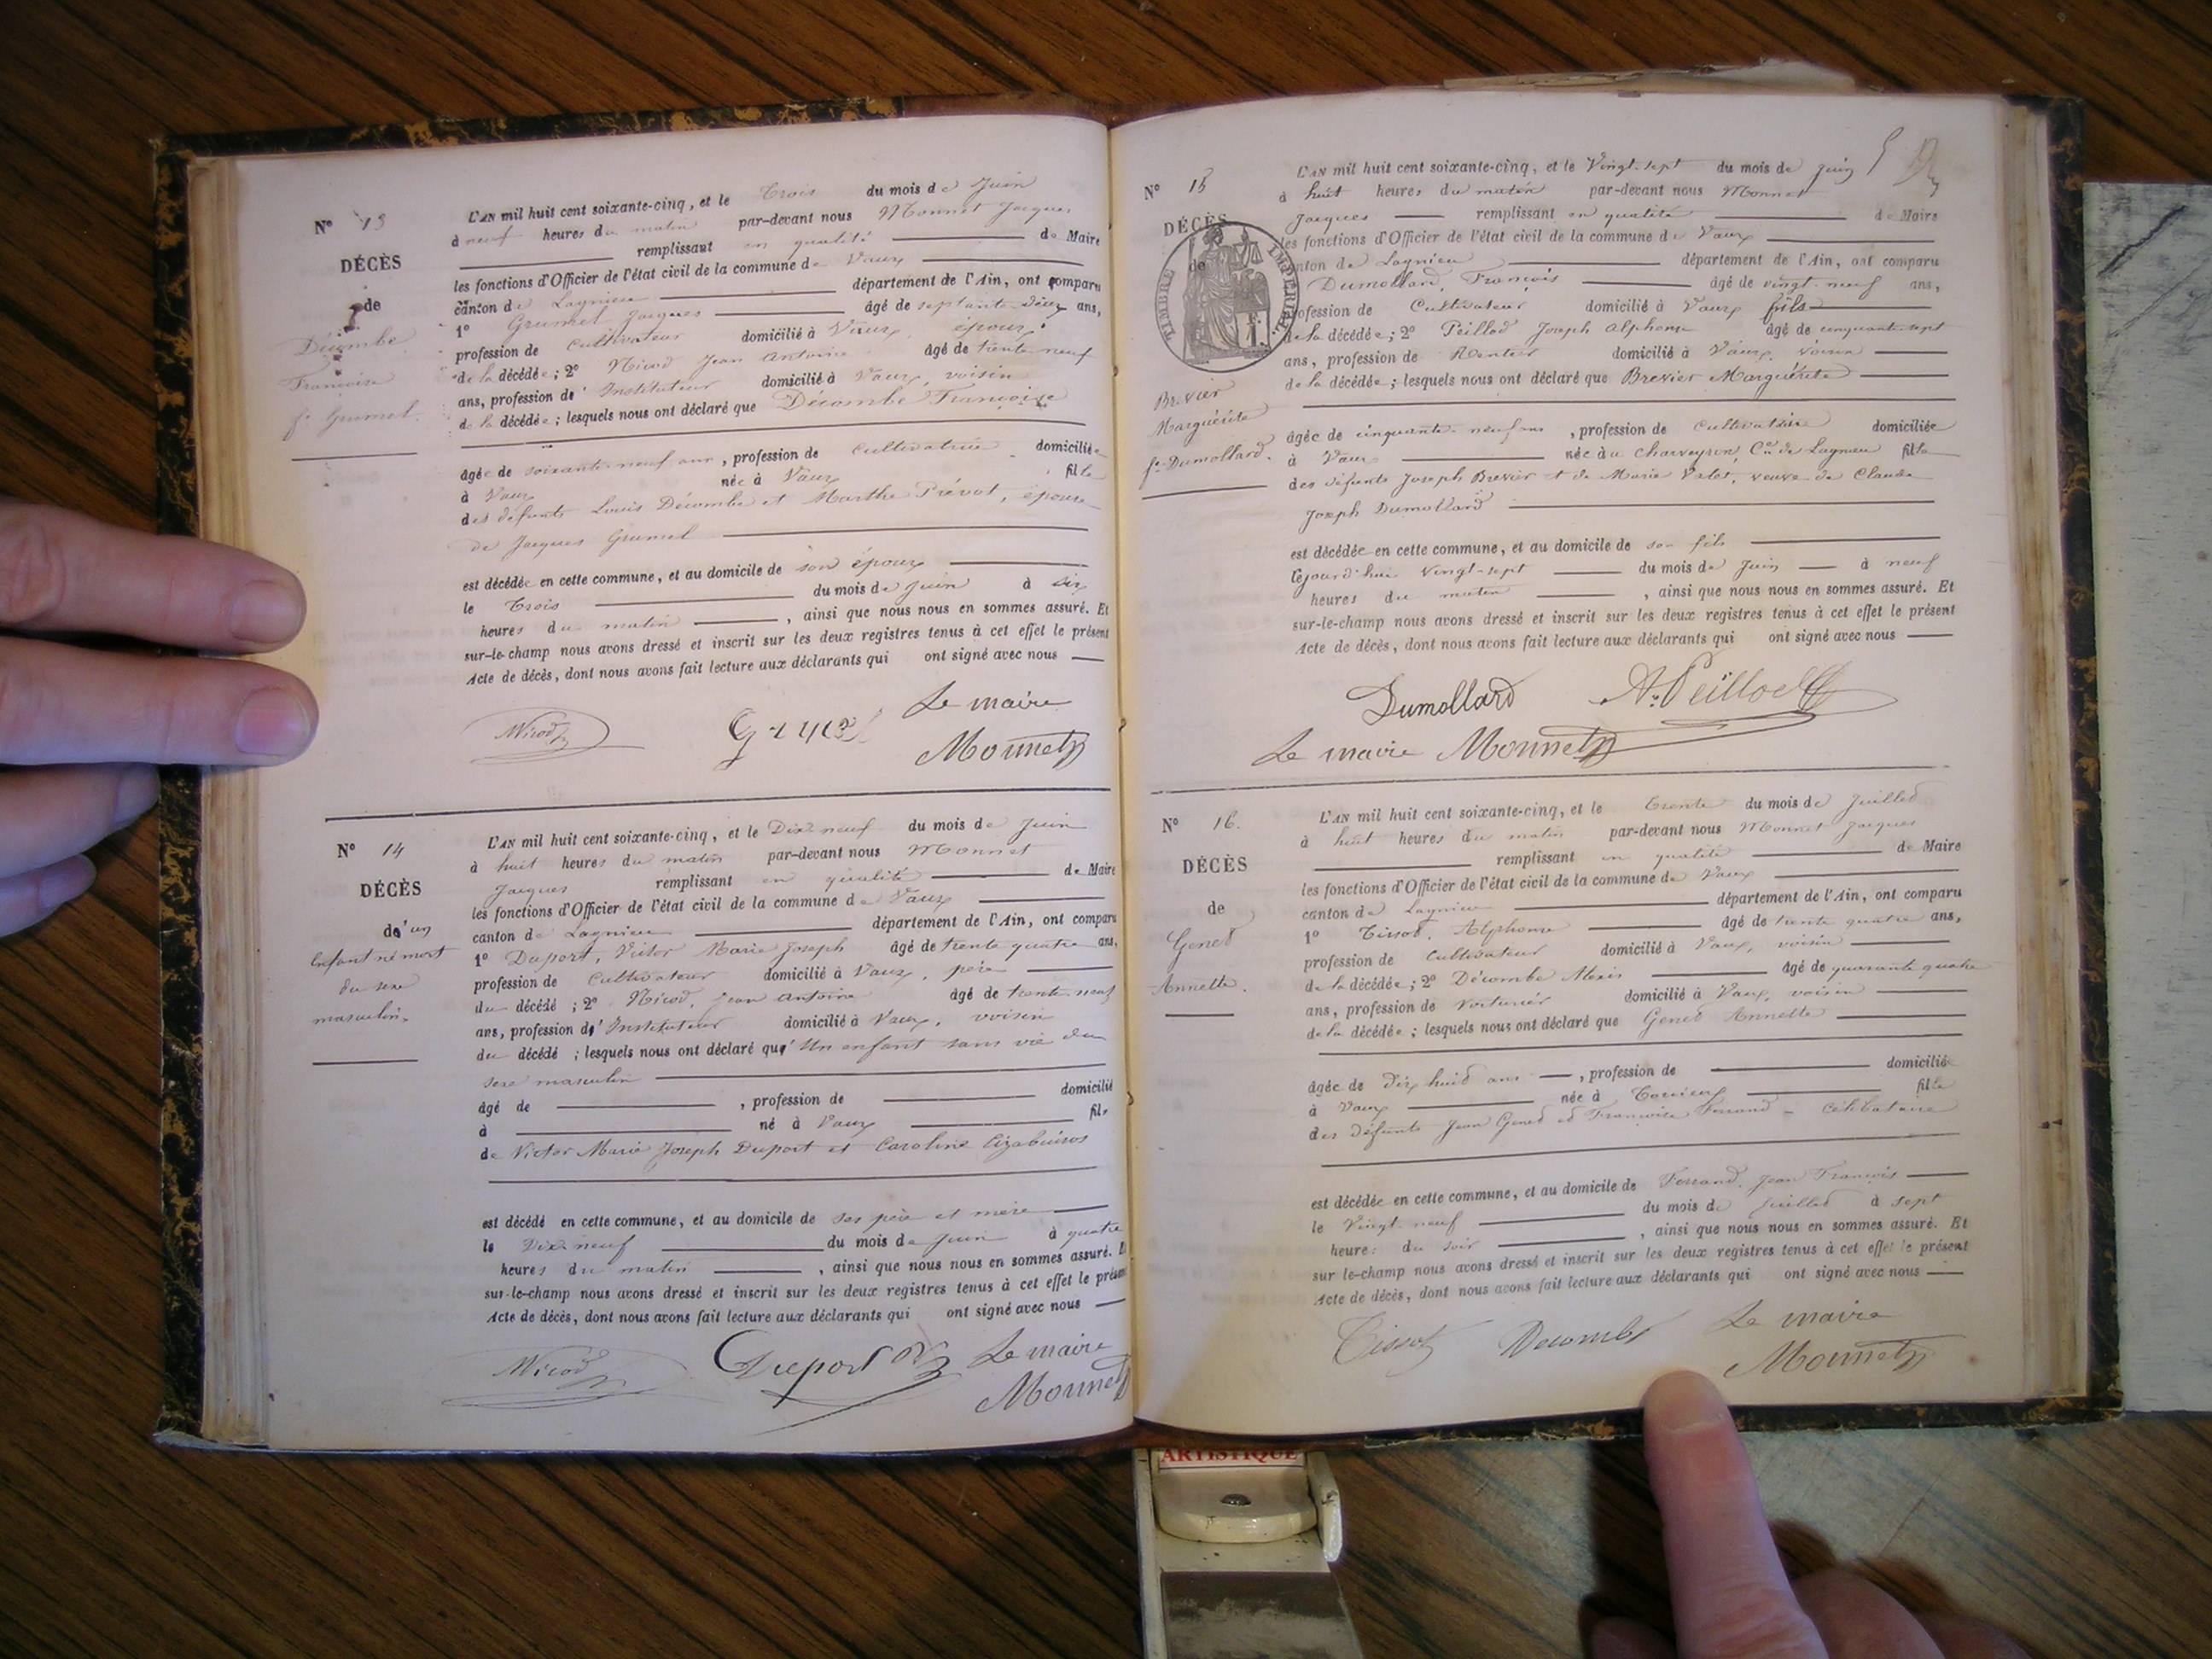 N° 13
DÉCÈS
de
Décombe
Françoise
fe Grumel
L'AN mil huit cent soixante-cinq, et le Trois du mois de Juin
à neuf heures du matin par-devant nous Monnet Jacques
remplissant en qualité de Maire
les fonctions d'Officier de l'état civil de la commune de Vaux
canton de Lagnieu département de l'Ain, ont comparu
1° Grumel Jacques âgé de septante deux ans,
profession de Cultivateur domicilié à Vaux, époux
de la décédée; 2° Nicod Jean Antoine âgé de trente neuf
ans, profession d' Instituteur domicilié à Vaux, voisin
de la décédée; lesquels nous ont déclaré que Décombe Françoise
âgée de soixante-neuf ans, profession de Cultivatrice domiciliée
à Vaux née à Vaux fille
des défunts Louis Décombe et Marthe Prévot, épouse
de Jacques Grumel
est décédée en cette commune, et au domicile de son époux
le Trois du mois de Juin à six
heures du matin, ainsi que nous nous en sommes assuré. Et
sur-le-champ nous avons dressé et inscrit sur les deux registres tenus à cet effet le présent
Acte de décès, dont nous avons fait lecture aux déclarants qui ont signé avec nous
Nicod Le maire
Monnet
N° 14
DÉCÈS
d'un
Enfant né mort
du sexe
masculin.
L'AN mil huit cent soixante-cinq, et le Dix neuf du mois de Juin
à huit heures du matin par-devant nous Monnet
Jacques remplissant en qualité de Maire
les fonctions d'Officier de l'état civil de la commune de Vaux
canton de Lagnieu département de l'Ain, ont comparu
1° Duport, Victor Marie Joseph âgé de trente quatre ans,
profession de Cultivateur domicilié à Vaux, père
du décédé; 2° Nicod, Jean Antoine âgé de trente-neuf
ans, profession d' Instituteur domicilié à Vaux, voisin
du décédé; lesquels nous ont déclaré qu' Un enfant sans vie du
sexe masculin
âgé de , profession de domicilié
à né à Vaux fils
de Victor Marie Joseph Duport et Caroline
est décédé en cette commune, et au domicile de ses père et mère
le Dix-neuf du mois de Juin à quatre
heures du matin, ainsi que nous nous en sommes assuré. Et
sur-le-champ nous avons dressé et inscrit sur les deux registres tenus à cet effet le présent
Acte de décès, dont nous avons fait lecture aux déclarants qui ont signé avec nous
Nicod Duport Le maire
Monnet
5
N° 15
DÉCÈS
de
TIMBRE IMPÉRIAL
Brevier
Marguérite
fe Dumollard.
L'AN mil huit cent soixante-cinq, et le Vingt-sept du mois de Juin
à huit heures du matin par-devant nous Monnet
Jacques remplissant en qualité de Maire
les fonctions d'Officier de l'état civil de la commune de Vaux
canton de Lagnieu département de l'Ain, ont comparu
Dumollard, François âgé de vingt-neuf ans,
profession de Cultivateur domicilié à Vaux fils
de la décédée; 2° Peillod Joseph Alphonse âgé de cinquante-sept
ans, profession de Rentier domicilié à Vaux, voisin
de la décédée; lesquels nous ont déclaré que Brevier Marguérite
âgée de cinquante-neuf ans, profession de Cultivatrice domiciliée
à Vaux née au Charveyron, Con de Lagnieu fille
des défunts Joseph Brevier et de Marie Valet, veuve de Claude
Joseph Dumollard
est décédée en cette commune, et au domicile de son fils
cejourd'hui vingt-sept du mois de Juin à neuf
heures du matin, ainsi que nous nous en sommes assuré. Et
sur-le-champ nous avons dressé et inscrit sur les deux registres tenus à cet effet le présent
Acte de décès, dont nous avons fait lecture aux déclarants qui ont signé avec nous
Dumollard A. Peillod
Le maire Monnet
N° 16.
DÉCÈS
de
Genet
Annette.
L'AN mil huit cent soixante-cinq, et le Trente du mois de Juillet
à huit heures du matin par-devant nous Monnet Jacques
remplissant en qualité de Maire
les fonctions d'Officier de l'état civil de la commune de Vaux
canton de Lagnieu département de l'Ain, ont comparu
1° Tissot, Alphonse âgé de trente quatre ans,
profession de Cultivateur domicilié à Vaux, voisin
de la décédée; 2° Décombe Alexis âgé de quarante quatre
ans, profession de Voiturier domicilié à Vaux, voisin
de la décédée; lesquels nous ont déclaré que Genet Annette
âgée de Dix huit ans, profession de domiciliée
à Vaux née à Torcieu fille
des défunts Jean Genet et Françoise Ferrand - Célibataire
est décédée en cette commune, et au domicile de Ferrand, Jean François
le Vingt-neuf du mois de Juillet à sept
heures du soir, ainsi que nous nous en sommes assuré. Et
sur-le-champ nous avons dressé et inscrit sur les deux registres tenus à cet effet le présent
Acte de décès, dont nous avons fait lecture aux déclarants qui ont signé avec nous
Tissot Decombe Le maire
Monnet
ARTISTIQUE